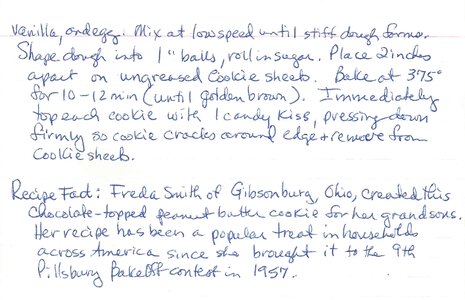 vanilla, and egg. Mix at low speed until stiff dough forms.
Shape dough into 1" balls, roll in sugar. Place 2 inches
apart on ungreased cookie sheets. Bake at 375°
for 10-12 min (until golden brown). Immediately
top each cookie with 1 candy kiss, pressing down
firmly so cookie cracks around edge + remove from
cookie sheets.
Recipe Fact: Freda Smith of Gibsonburg, Ohio, created this
chocolate-topped peanut butter cookie for her grandsons.
Her recipe has been a popular treat in households
across America since she brought it to the 9th
Pillsbury BakeOff contest in 1957.